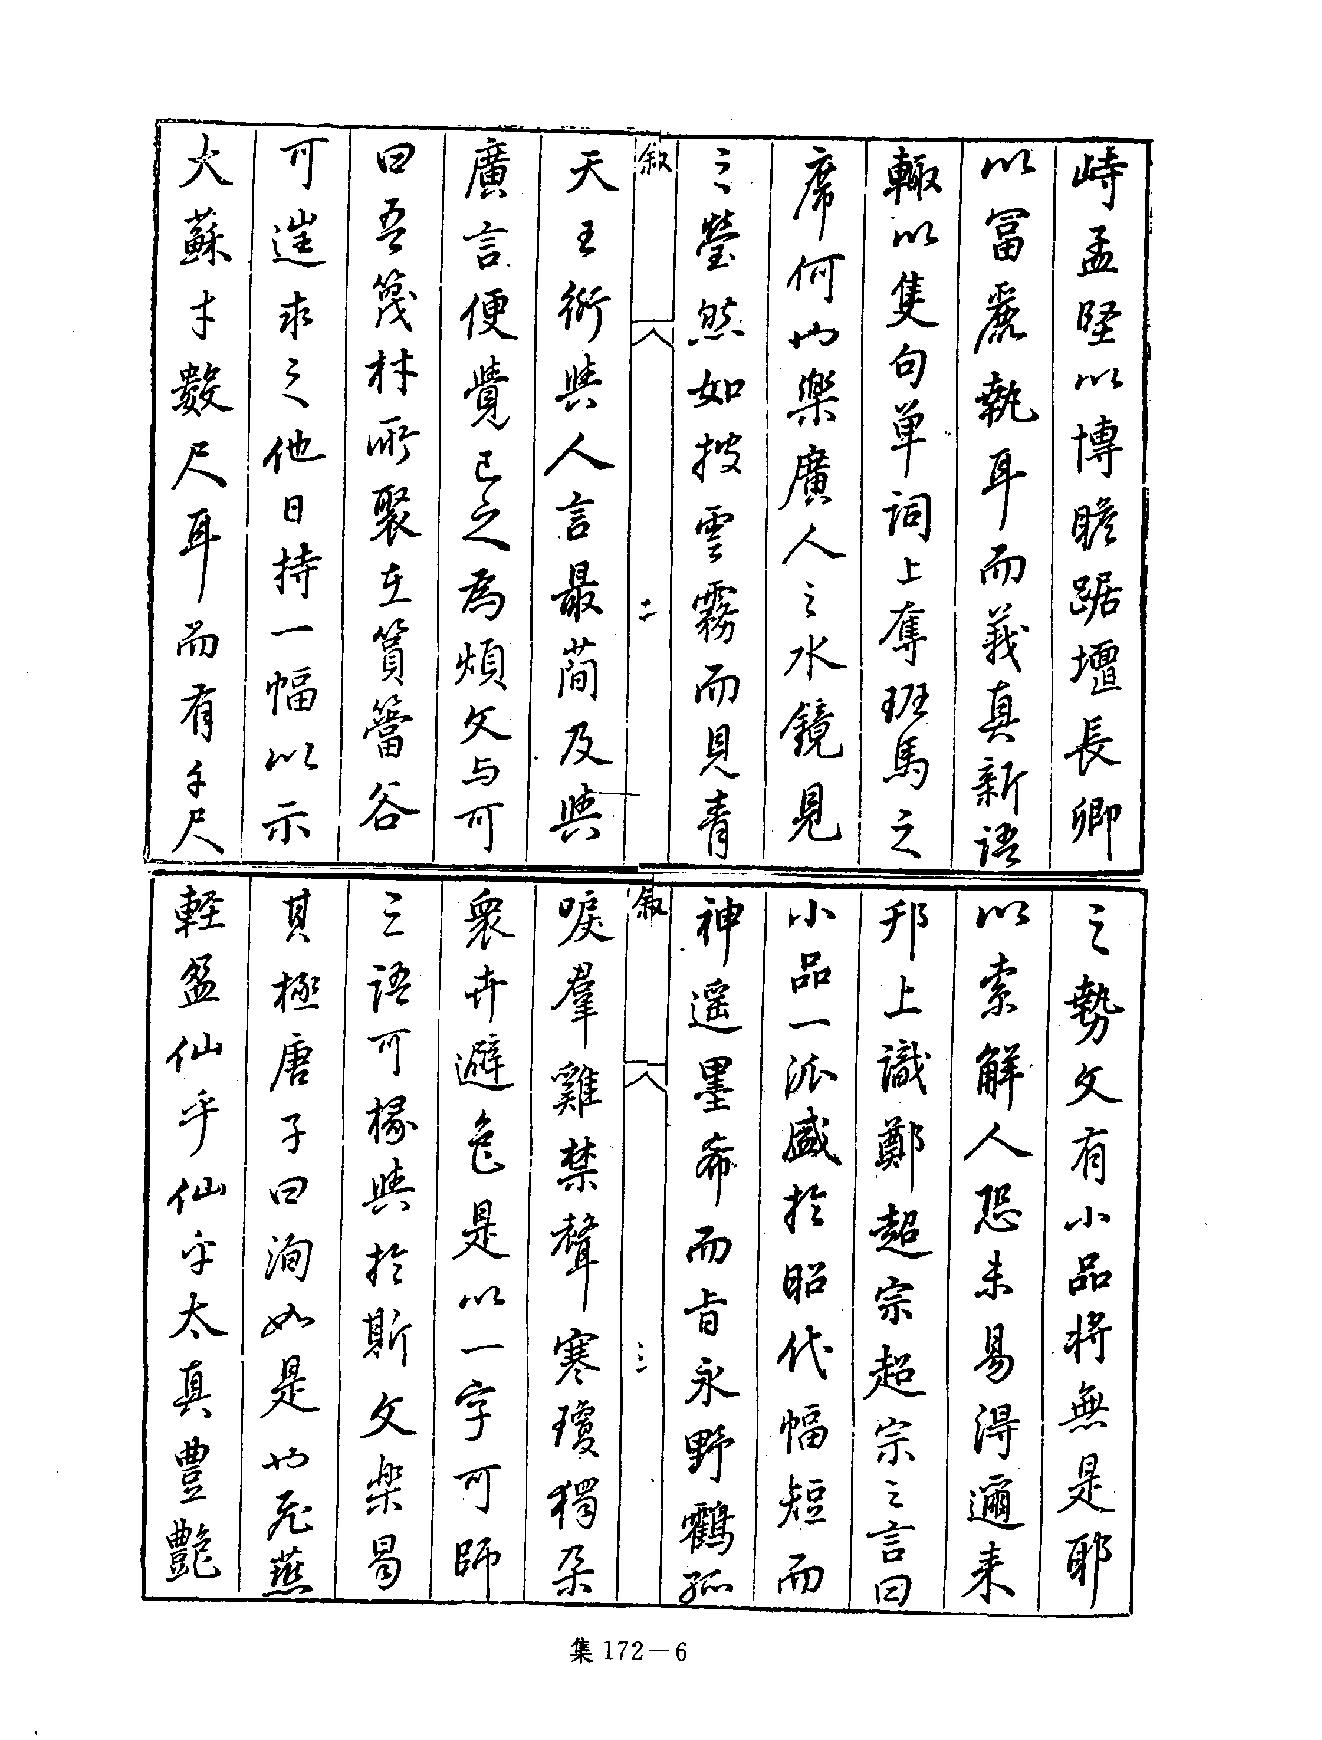 峙孟堅以博瞻踞壇長卿
以富麗執耳而義真新語
輙以隻句单詞上奪班馬之
席何也樂廣人之水鏡見
之瑩然如披雲霧而見青
敘
二
天王衍與人言最蕳及與
廣言便覺已之為煩文与可
曰吾篾材所聚在篔簹谷
可遑求之他日持一幅以示
大蘇才數尺耳而有千尺
之勢文有小品将無是耶
以索解人恐未易得邇来
邘上識鄭超宗超宗之言曰
小品一派盛於昭代幅短而
神遥墨希而旨永野鶴孤
敘
三
唳羣雞禁聲寒瓊獨朵
衆卉避色是以一字可師
三語可掾與於斯文樂曷
其極唐子曰洵如是也飛燕
軽盈仙乎仙乎太真豊艷
集 172－6